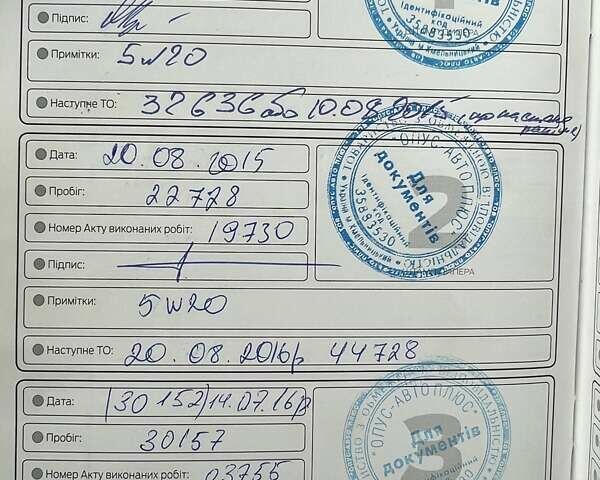 Підпис:
Примітки: 5w20
Наступне ТО: 32636 або 10.08.2015
Дата: 20.08.2015
Пробіг: 22728
Номер Акту виконаних робіт: 19730
Підпис:
Примітки: 5w20
Наступне ТО: 20.08.2016р 44728
Дата: (30152) 14.07.16р
Пробіг: 30157
Номер Акту виконаних робіт: 03755
Ідентифікаційний
код
35893530
Україна м.Хмельницький
ТОВАРИСТВО З ОБМЕЖЕНОЮ ВІДПОВІДАЛЬНІСТЮ
"ОПУС-АВТО ПЛЮС"
Для
документів
Ідентифікаційний
код
35893530
Україна м.Хмельницький
2
"ОПУС-АВТО ПЛЮС"
Для
документів
3